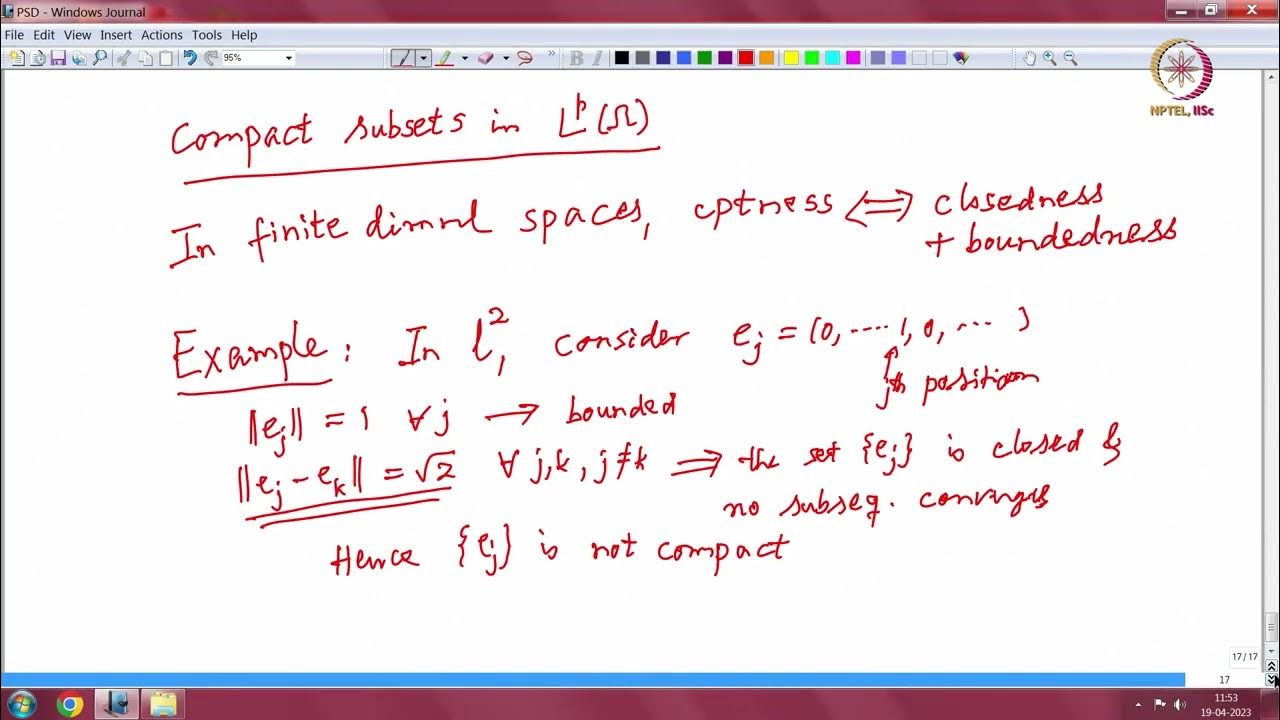 PSD - Windows Journal
File Edit View Insert Actions Tools Help
95%
NPTEL, IISc
Compact subsets in L^p(Ω)
In finite dimnl spaces, cptness ⟺ closedness
+ boundedness
Example: In l², consider e_j = (0, ····1, 0, ··· )
jth position
||e_j|| = 1 ∀ j → bounded
||e_j - e_k|| = √2 ∀ j, k, j ≠ k ⟹ the set {e_j} is closed &
no subseq. converges
Hence {e_j} is not compact
17 / 17
17
11:53
19-04-2023